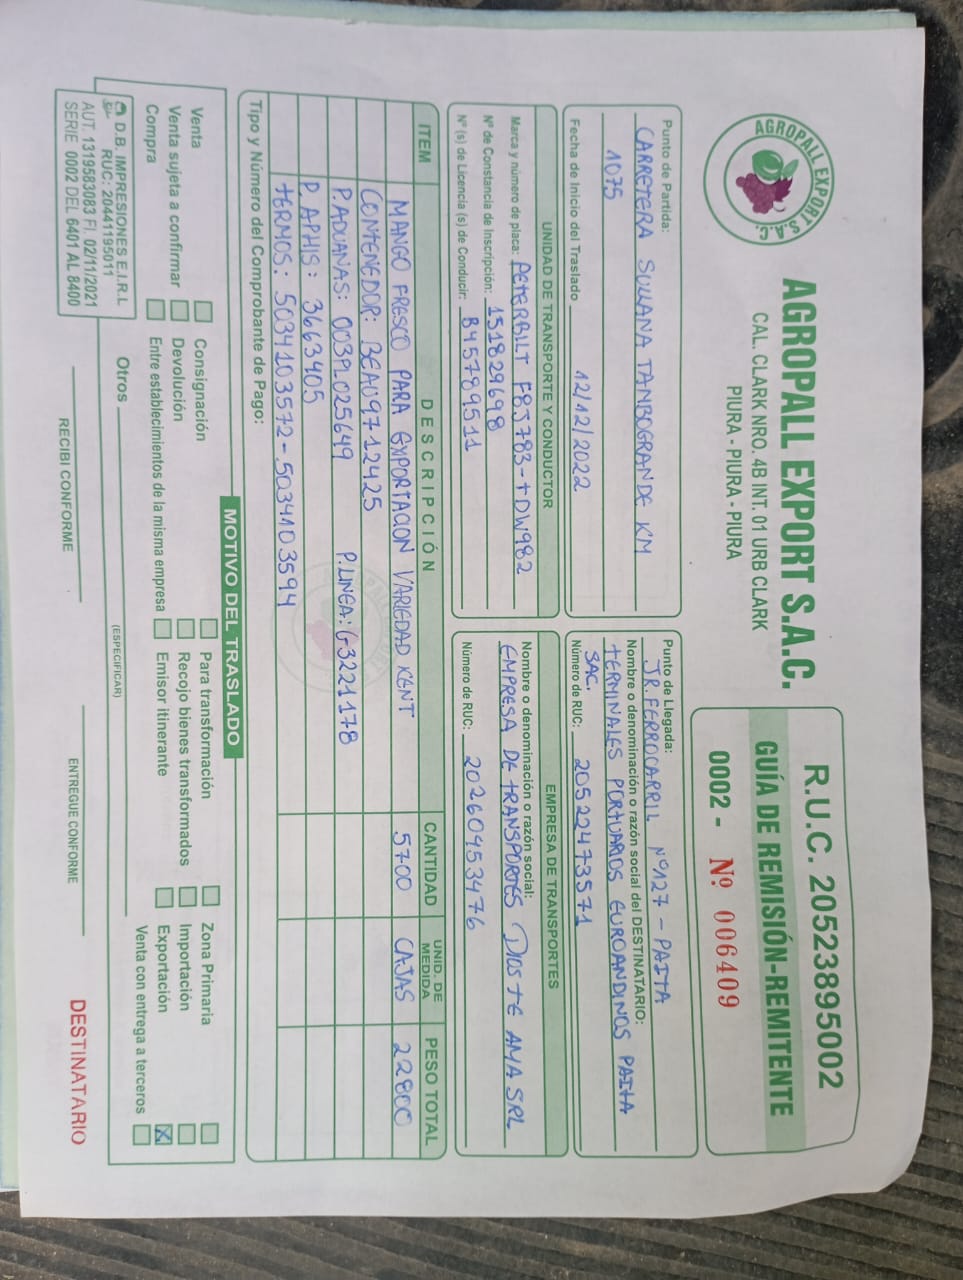 AGROPALL EXPORT S.A.C.
AGROPALL EXPORT S.A.C.
CAL. CLARK NRO. 4B INT. 01 URB CLARK
PIURA - PIURA - PIURA
R.U.C. 20523895002
GUÍA DE REMISIÓN-REMITENTE
0002 - Nº 006409
Punto de Partida:
CARRETERA SULLANA TAMBOGRANDE KM
1075
Fecha de Inicio del Traslado 12/12/2022
Punto de Llegada:
JR. FERROCARRIL Nº127 - PAITA
Nombre o denominación o razón social del DESTINATARIO:
TERMINALES PORTUARIOS EUROANDINOS PAITA
SAC.
Número de RUC: 20522473571
UNIDAD DE TRANSPORTE Y CONDUCTOR
Marca y número de placa: PETERBILT F8J783-TDW982
Nº de Constancia de Inscripción: 151829698
Nº (s) de Licencia (s) de Conducir: B45789511
EMPRESA DE TRANSPORTES
Nombre o denominación o razón social:
EMPRESA DE TRANSPORTES DIOS TE AMA SRL
Número de RUC: 20260953476
ITEM DESCRIPCIÓN CANTIDAD UNID. DE MEDIDA PESO TOTAL
MANGO FRESCO PARA EXPORTACION VARIEDAD KENT 5700 CAJAS 22800
CONTENEDOR: BEAU9712425
P. ADUANAS: 003PL025649 P.LINEA: G3221178
P. APHIS: 3663405
TERMOS: 5034103572 - 5034103594
Tipo y Número del Comprobante de Pago:
MOTIVO DEL TRASLADO
Venta Consignación Para transformación Zona Primaria
Venta sujeta a confirmar Devolución Recojo bienes transformados Importación
Compra Entre establecimientos de la misma empresa Emisor itinerante Exportación
Venta con entrega a terceros
Otros
(ESPECIFICAR)
D.B. IMPRESIONES E.I.R.L
RUC: 20441195011
AUT. 1319583083 FI. 02/11/2021
SERIE 0002 DEL 6401 AL 8400
RECIBI CONFORME
ENTREGUE CONFORME
DESTINATARIO